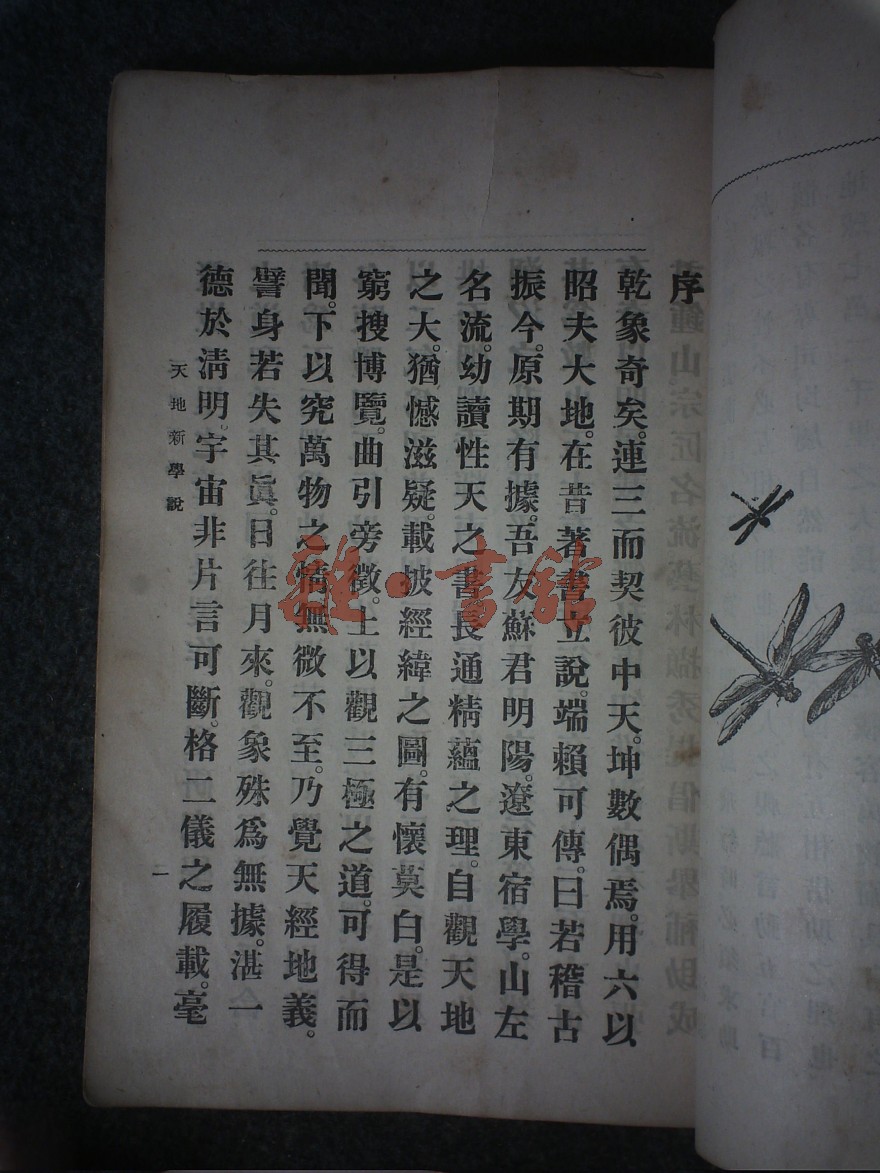 序
乾象奇矣。連三而契彼中天。坤數偶焉。用六以
昭夫大地。在昔著書立說。端賴可傳。曰若稽古
振今。原期有據。吾友蘇君明陽。遼東宿學。山左
名流。幼讀性天之書。長通精蘊之理。自觀天地
之大。猶憾滋疑。載披經緯之圖。有懷莫白。是以
窮搜博覽。曲引旁徵。上以觀三極之道。可得而
聞。下以究萬物之情。無微不至。乃覺天經地義。
譬身若失其眞。日往月來。觀象殊爲無據。湛一
德於淸明。宇宙非片言可斷。格二儀之履載。毫
天地新學說
二
雜·書館